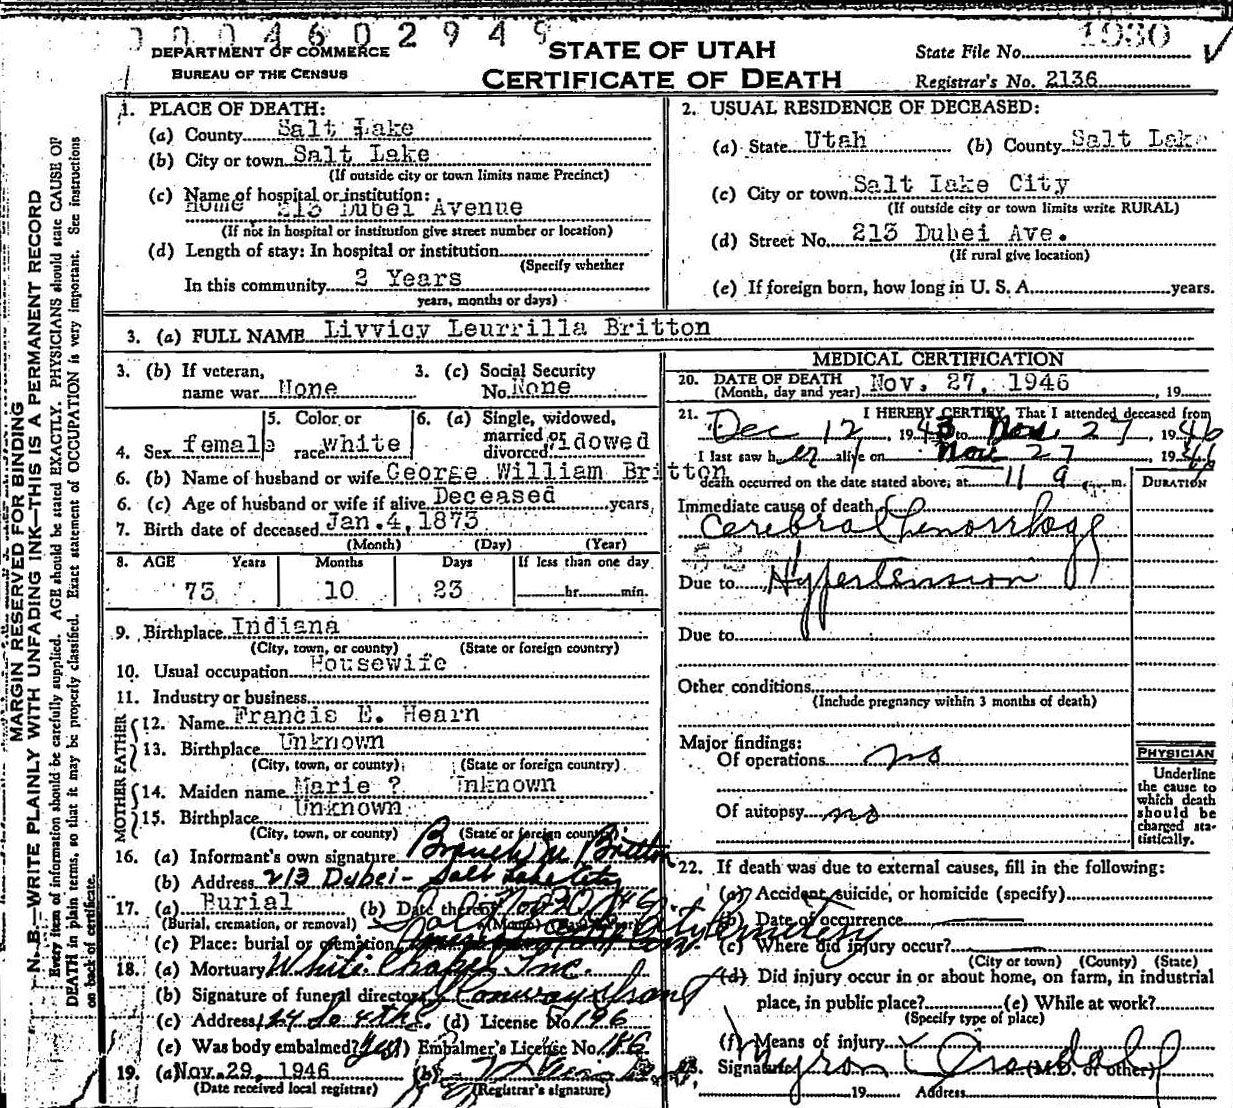 0004602949
DEPARTMENT OF COMMERCE
BUREAU OF THE CENSUS
STATE OF UTAH
CERTIFICATE OF DEATH
State File No. 1930
Registrar's No. 2136
MARGIN RESERVED FOR BINDING
N. B.—WRITE PLAINLY WITH UNFADING INK—THIS IS A PERMANENT RECORD
Every item of information should be carefully supplied. AGE should be stated EXACTLY. PHYSICIANS should state CAUSE OF
DEATH in plain terms, so that it may be properly classified. Exact statement of OCCUPATION is very important. See instructions
on back of certificate.
1. PLACE OF DEATH:
(a) County Salt Lake
(b) City or town Salt Lake
(If outside city or town limits name Precinct)
(c) Name of hospital or institution:
Home 213 Dubei Avenue
(If not in hospital or institution give street number or location)
(d) Length of stay: In hospital or institution
(Specify whether
In this community 2 Years
years, months or days)
2. USUAL RESIDENCE OF DECEASED:
(a) State Utah (b) County Salt Lake
(c) City or town Salt Lake City
(If outside city or town limits write RURAL)
(d) Street No. 213 Dubei Ave.
(If rural give location)
(e) If foreign born, how long in U. S. A. years.
3. (a) FULL NAME Livvicy Leurrilla Britton
3. (b) If veteran,
name war None
3. (c) Social Security
No. None
4. Sex female
5. Color or
race white
6. (a) Single, widowed,
married or
divorced Widowed
6. (b) Name of husband or wife George William Britton
6. (c) Age of husband or wife if alive Deceased years
7. Birth date of deceased Jan. 4, 1873
(Month) (Day) (Year)
8. AGE Years Months Days If less than one day
73 10 23 hr. min.
9. Birthplace Indiana
(City, town, or county) (State or foreign country)
10. Usual occupation Housewife
11. Industry or business
FATHER
12. Name Francis E. Hearn
13. Birthplace Unknown
(City, town, or county) (State or foreign country)
MOTHER
14. Maiden name Marie ? Unknown
15. Birthplace Unknown
(City, town, or county) (State or foreign country)
16. (a) Informant's own signature Britton
(b) Address 213 Dubei - Salt Lake City
17. (a) Burial (b) Date thereof Nov 30 1946
(Burial, cremation, or removal) (Month) (Day) (Year)
(c) Place: burial or cremation Salt Lake City Cemetery
18. (a) Mortuary White Chapel Inc.
(b) Signature of funeral director
(c) Address 124 So 4th E. (d) License No. 196
(e) Was body embalmed? Yes (f) Embalmer's License No. 186
19. (a) Nov. 29, 1946 (b)
(Date received local registrar) (Registrar's signature)
MEDICAL CERTIFICATION
20. DATE OF DEATH Nov. 27, 1946
(Month, day and year) , 19
21. I HEREBY CERTIFY, That I attended deceased from
Dec 12, 1943 to Nov 27, 1946
I last saw her alive on Nov 27, 1946
death occurred on the date stated above, at 11 a. m.
DURATION
Immediate cause of death
Cerebral hemorrhage
Due to Hypertension
Due to
Other conditions
(Include pregnancy within 3 months of death)
Major findings:
Of operations no
Of autopsy no
PHYSICIAN
Underline
the cause to
which death
should be
charged sta-
tistically.
22. If death was due to external causes, fill in the following:
(a) Accident, suicide, or homicide (specify)
(b) Date of occurrence
(c) Where did injury occur?
(City or town) (County) (State)
(d) Did injury occur in or about home, on farm, in industrial
place, in public place? (e) While at work?
(Specify type of place)
(f) Means of injury
23. Signature Myron Crandall (M.D. or other)
19 Address